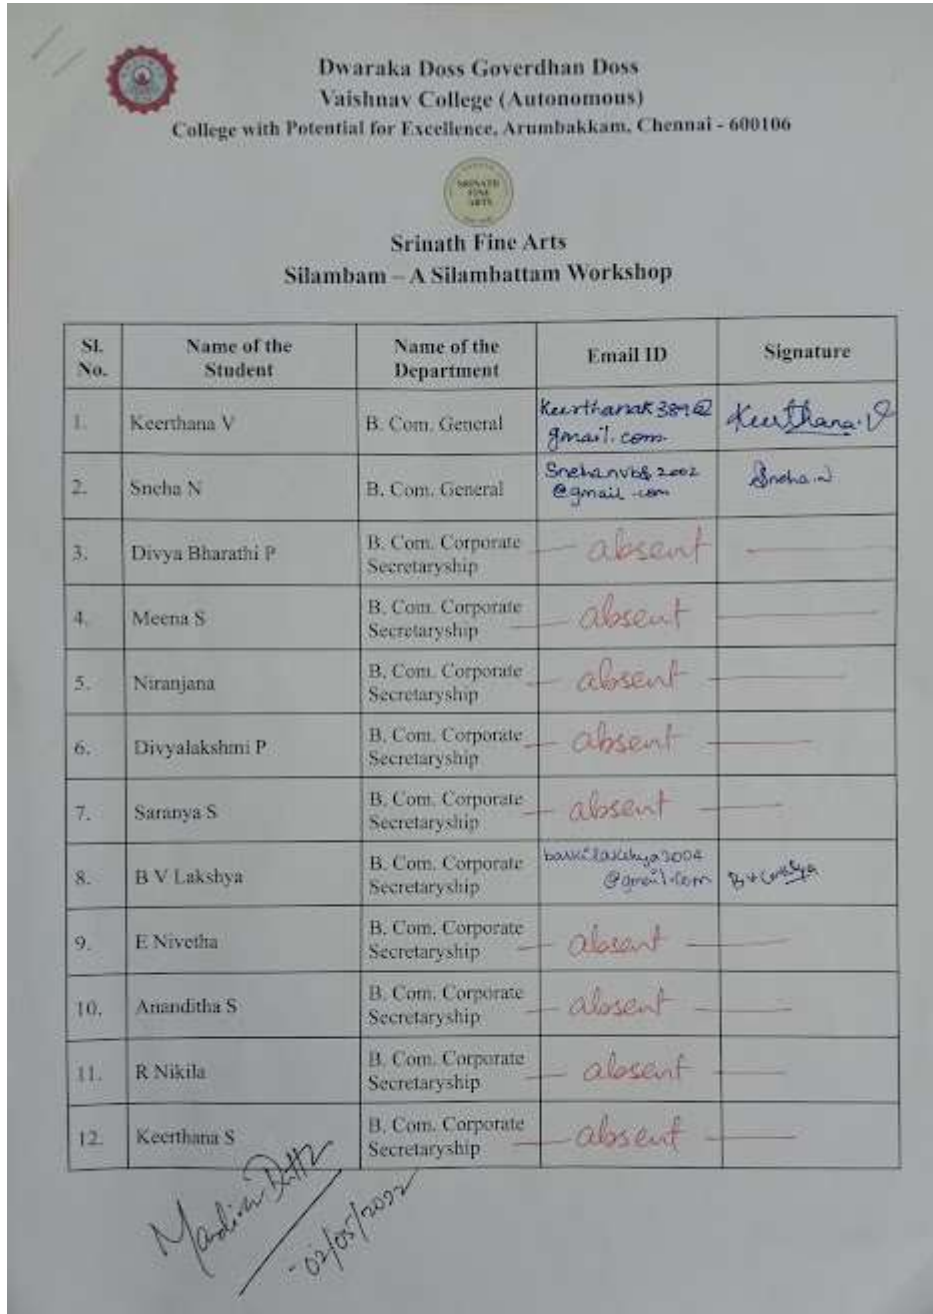 Dwaraka Doss Goverdhan Doss
Vaishnav College (Autonomous)
College with Potential for Excellence, Arumbakkam, Chennai - 600106
SRINATH
FINE
ARTS
Srinath Fine Arts
Silambam – A Silambattam Workshop
Sl. No. Name of the Student Name of the Department Email ID Signature
1. Keerthana V B. Com. General keerthanak389@gmail.com Keerthana.V
2. Sneha N B. Com. General @gmail.com Sneha.N
3. Divya Bharathi P B. Com. Corporate Secretaryship absent
4. Meena S B. Com. Corporate Secretaryship absent
5. Niranjana B. Com. Corporate Secretaryship absent
6. Divyalakshmi P B. Com. Corporate Secretaryship absent
7. Saranya S B. Com. Corporate Secretaryship absent
8. B V Lakshya B. Com. Corporate Secretaryship @gmail.com B V Lakshya
9. E Nivetha B. Com. Corporate Secretaryship absent
10. Ananditha S B. Com. Corporate Secretaryship absent
11. R Nikila B. Com. Corporate Secretaryship absent
12. Keerthana S B. Com. Corporate Secretaryship absent
02/05/2022